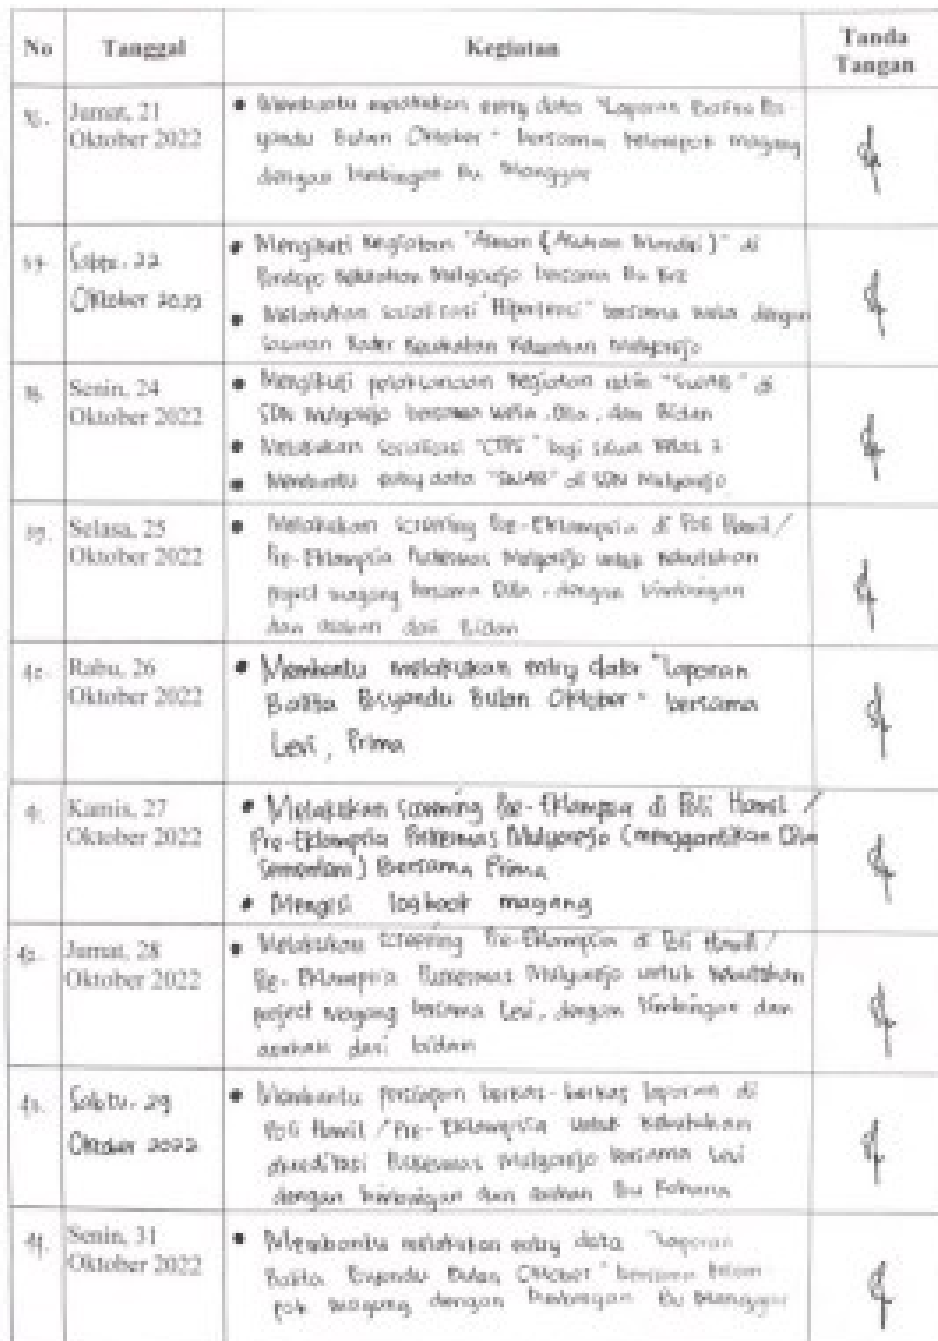 No Tanggal Kegiatan Tanda Tangan
36. Jumat, 21 Oktober 2022
• Membantu melakukan entry data "Laporan Balita Po
yandu Bulan Oktober" bersama kelompok magang
dengan bimbingan Bu Manggar
37. Sabtu, 22 Oktober 2022
• Mengikuti kegiatan "Asman (Asuhan Mandiri)" di
Pendopo Kelurahan Mulyorejo bersama Bu
• Melakukan sosialisasi "Hipertensi" bersama dengan
sasaran Kader Kesehatan Kelurahan Mulyorejo
38. Senin, 24 Oktober 2022
• Mengikuti pelaksanaan kegiatan rutin "SWAB" di
SDN Mulyorejo bersama Dita, dan Bidan
• Melakukan sosialisasi "CTPS" bagi siswa kelas 3
• Membantu entry data "SWAB" di SDN Mulyorejo
39. Selasa, 25 Oktober 2022
• Melakukan screening Pre-Eklampsia di Poli Hamil/
Pre-Eklampsia Puskesmas Mulyorejo untuk kebutuhan
project magang bersama Dita, dengan bimbingan
dan arahan dari Bidan
40. Rabu, 26 Oktober 2022
• Membantu melakukan entry data "Laporan
Balita Posyandu Bulan Oktober" bersama
Levi, Prima
41. Kamis, 27 Oktober 2022
• Melakukan screening Pre-Eklampsia di Poli Hamil /
Pre-Eklampsia Puskesmas Mulyorejo (menggantikan Dita
Sementara) Bersama Prima
• Mengisi logbook magang
42. Jumat, 28 Oktober 2022
• Melakukan screening Pre-Eklampsia di Poli Hamil/
Pre-Eklampsia Puskesmas Mulyorejo untuk kebutuhan
project magang bersama Levi, dengan bimbingan dan
arahan dari bidan
43. Sabtu, 29 Oktober 2022
• Membantu persiapan berkas-berkas laporan di
Poli Hamil / Pre-Eklampsia untuk kebutuhan
akreditasi Puskesmas Mulyorejo bersama Levi
dengan bimbingan dan arahan Bu
44. Senin, 31 Oktober 2022
• Membantu melakukan entry data "Laporan
Balita Posyandu Bulan Oktober" bersama kelom
pok magang dengan bimbingan Bu Manggar